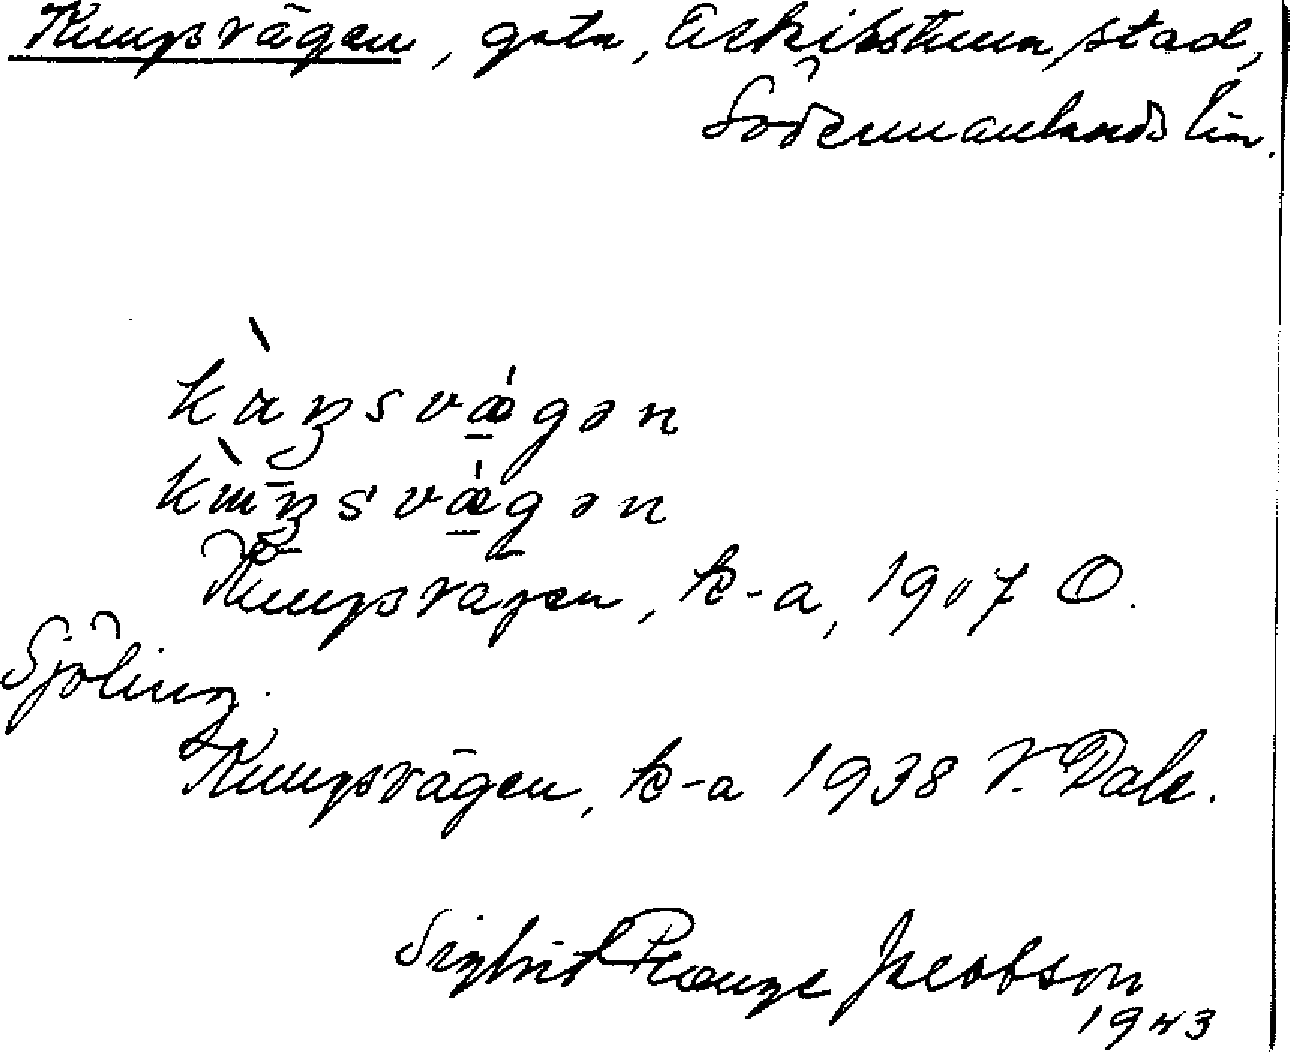 Kungsvägen, gata, Eskilstuna stad,
Södermanlands län.
kùŋsvǽgən
Kungsvägen, k-a, 1907 O.
Sjöling.
Kungsvägen, k-a 1938 V. Dale.
Sigbrit Plænge Jacobson
1943